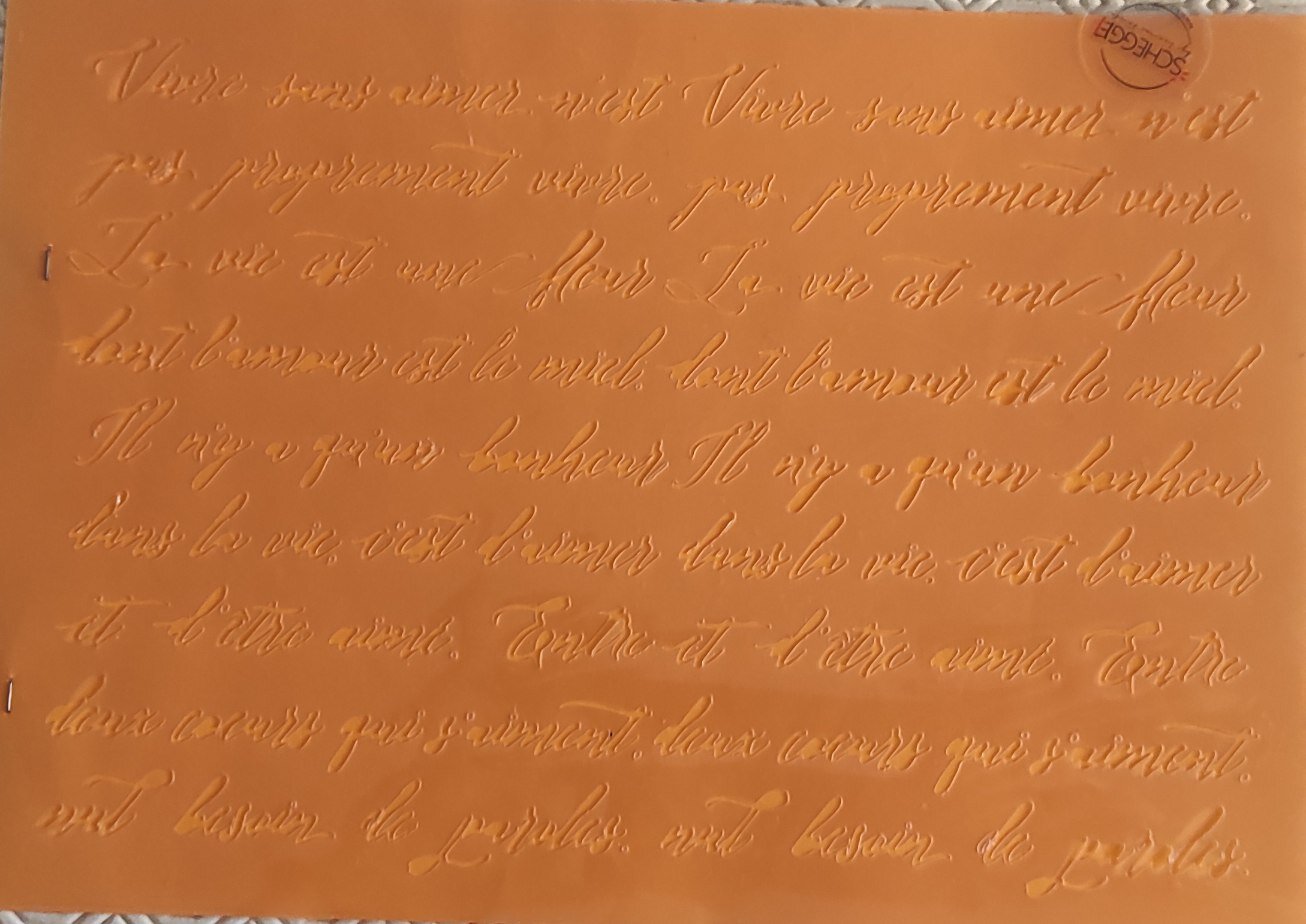 SCHEGGE
Vivre sans aimer n'est Vivre sans aimer n'est
pas proprement vivre. pas proprement vivre.
La vie est une fleur La vie est une fleur
dont l'amour est le miel. dont l'amour est le miel.
Il n'y a qu'un bonheur Il n'y a qu'un bonheur
dans la vie, c'est d'aimer dans la vie, c'est d'aimer
et d'être aimé. Entre et d'être aimé. Entre
deux coeurs qui s'aiment, deux coeurs qui s'aiment,
nul besoin de paroles. nul besoin de paroles.